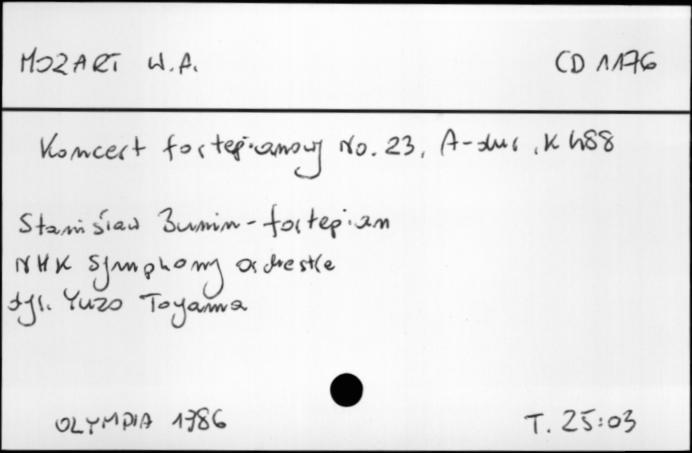 MOZART W.A. CD 1176
Koncert fortepianowy No. 23, A-dur, K 488
Stanisław Bunin - fortepian
NHK Symphony orchestre
dyr. Yuzo Toyama
OLYMPIA 1986 T. 25:03